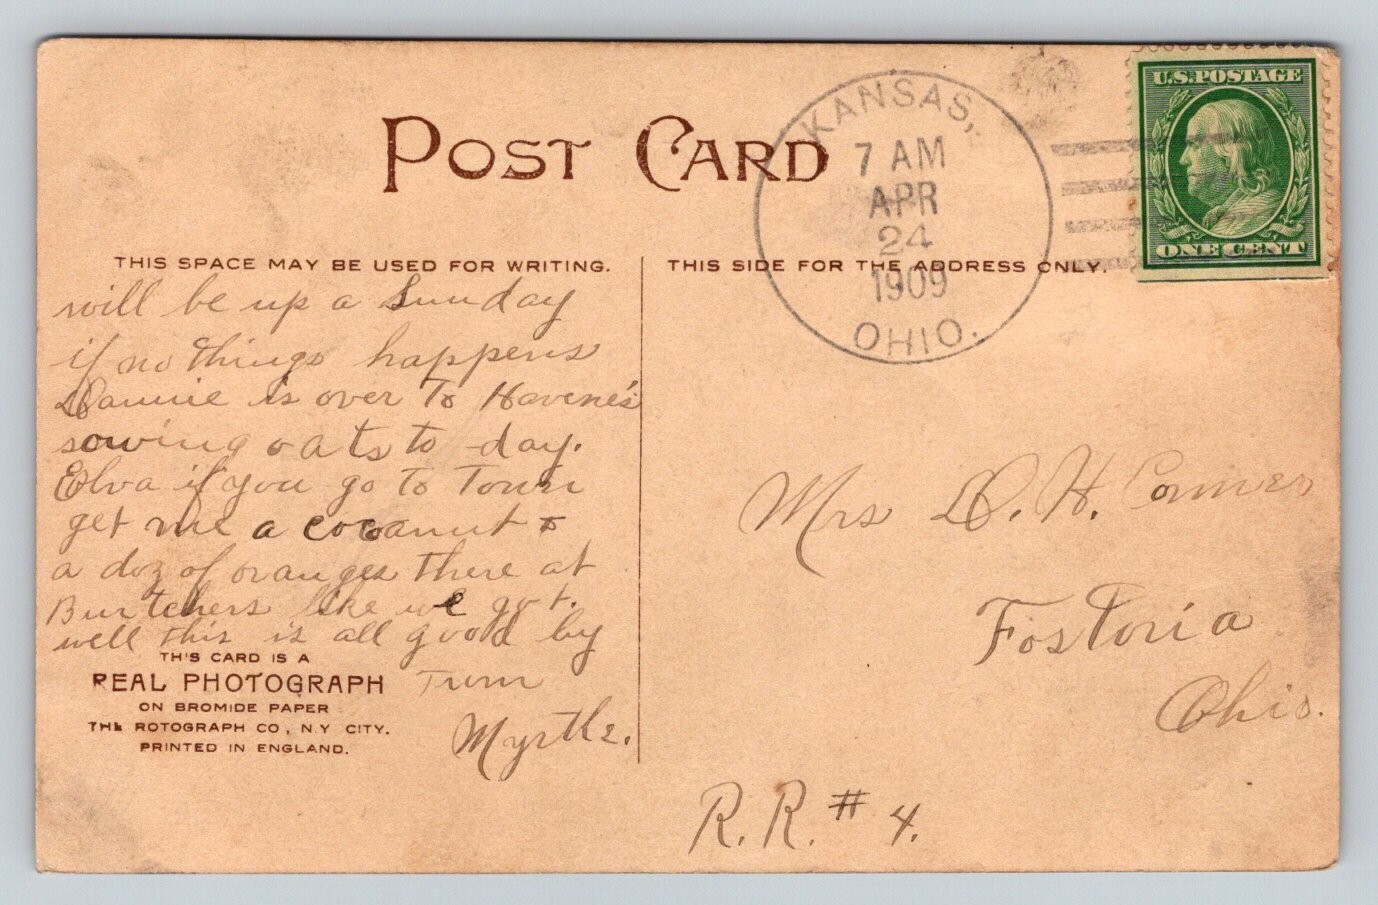 POST CARD
KANSAS,
7 AM
APR
24
1909
OHIO.
U.S. POSTAGE
ONE CENT
THIS SPACE MAY BE USED FOR WRITING.
THIS SIDE FOR THE ADDRESS ONLY.
will be up a Sunday
if no things happens
is over To Havene's
sowing oats to-day.
Elva if you go To Town
get me a cocoanut &
a doz of oranges There at
Burtchers like we got.
well this is all good by
From
Myrtle.
Mrs D. H. Conner
Fostoria
Ohio.
R.R. # 4.
TH'S CARD IS A
REAL PHOTOGRAPH
ON BROMIDE PAPER
THE ROTOGRAPH CO, N.Y CITY.
PRINTED IN ENGLAND.